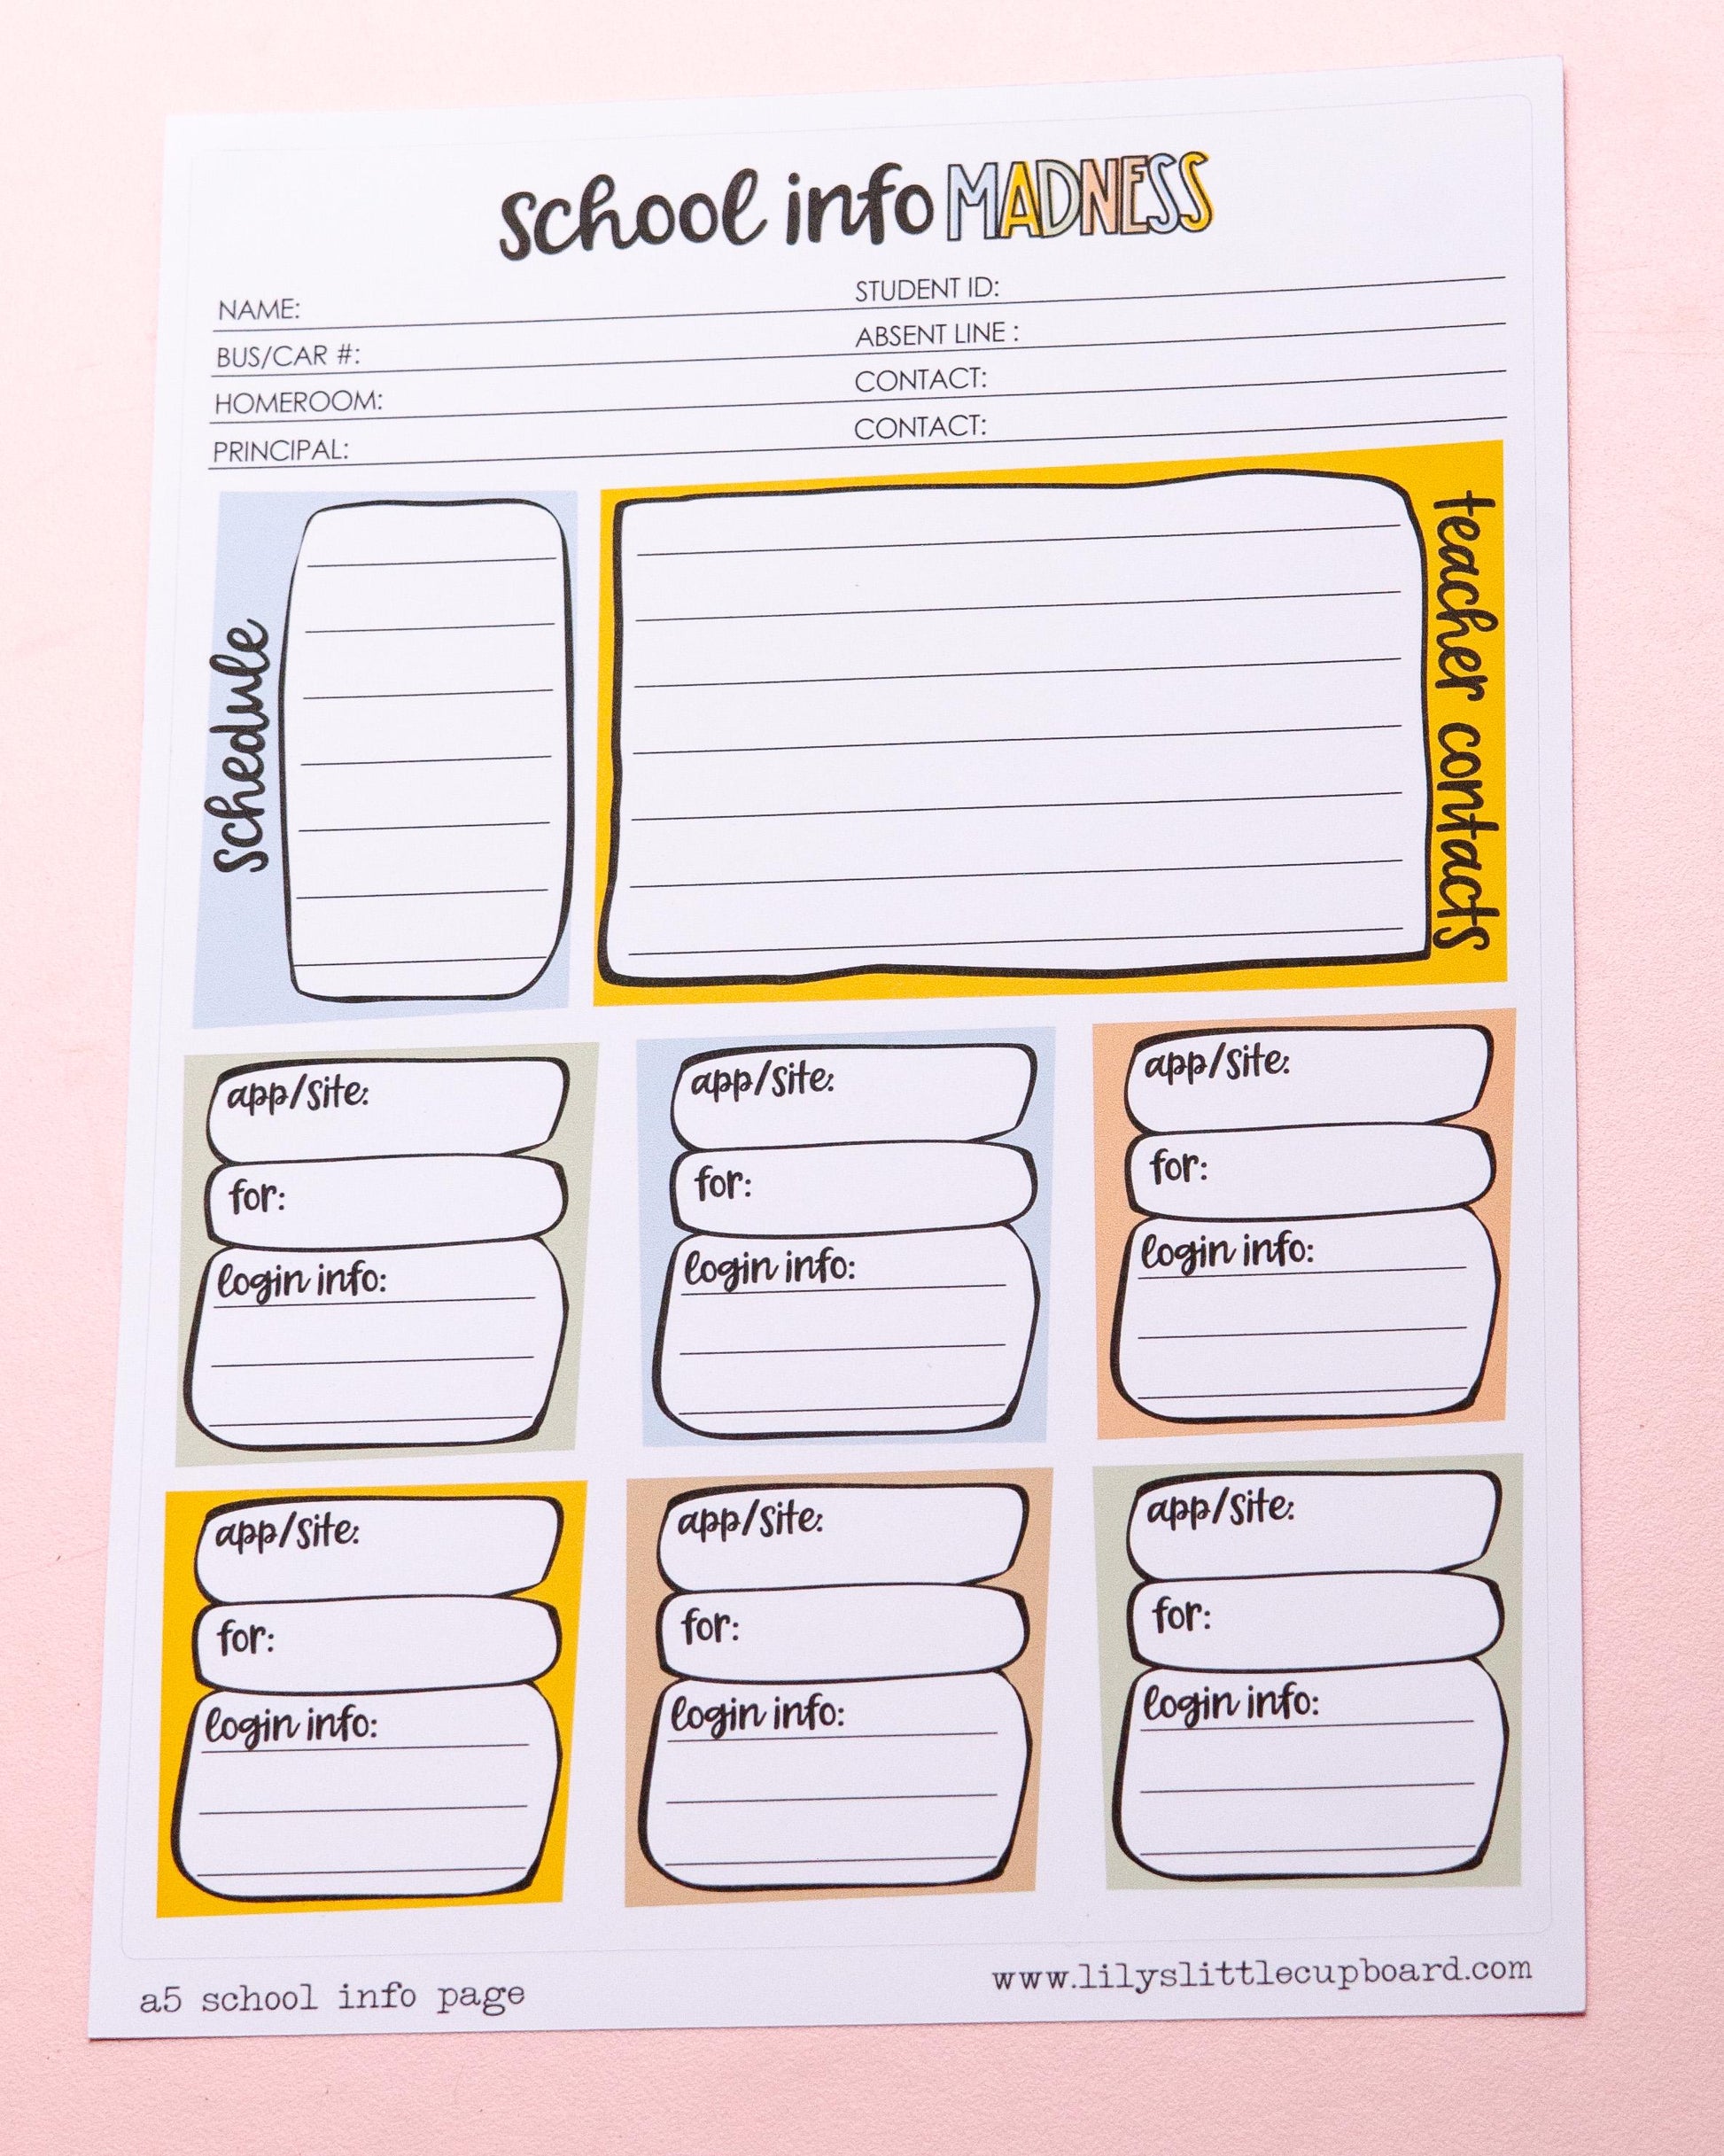 school info MADNESS
NAME:
STUDENT ID:
BUS/CAR #:
ABSENT LINE :
HOMEROOM:
CONTACT:
PRINCIPAL:
CONTACT:
schedule
teacher contacts
app/site:
for:
login info:
app/site:
for:
login info:
app/site:
for:
login info:
app/site:
for:
login info:
app/site:
for:
login info:
app/site:
for:
login info:
a5 school info page
www.lilyslittlecupboard.com